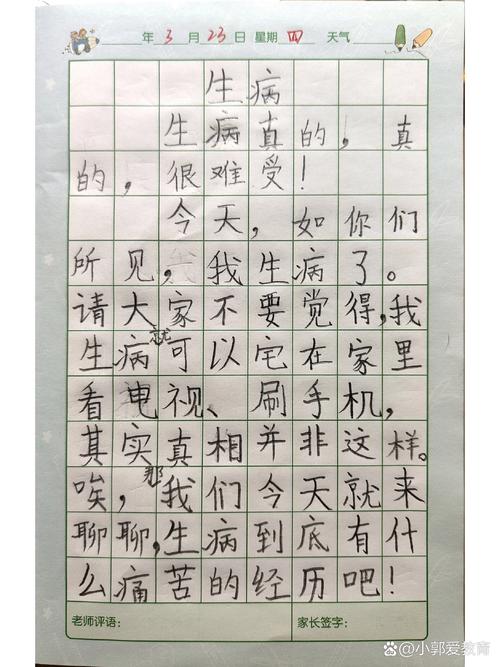 年3月23日 星期四 天气
生病
生病真的，真
的，很难受！
今天，如你们
所见，我生病了。
请大家不要觉得，我
生病就可以宅在家里
看电视、刷手机，
其实真相并非这样。
唉，那我们今天就来
聊聊，生病到底有什
么痛苦的经历吧！
老师评语： 家长签字：
@小郭爱教育